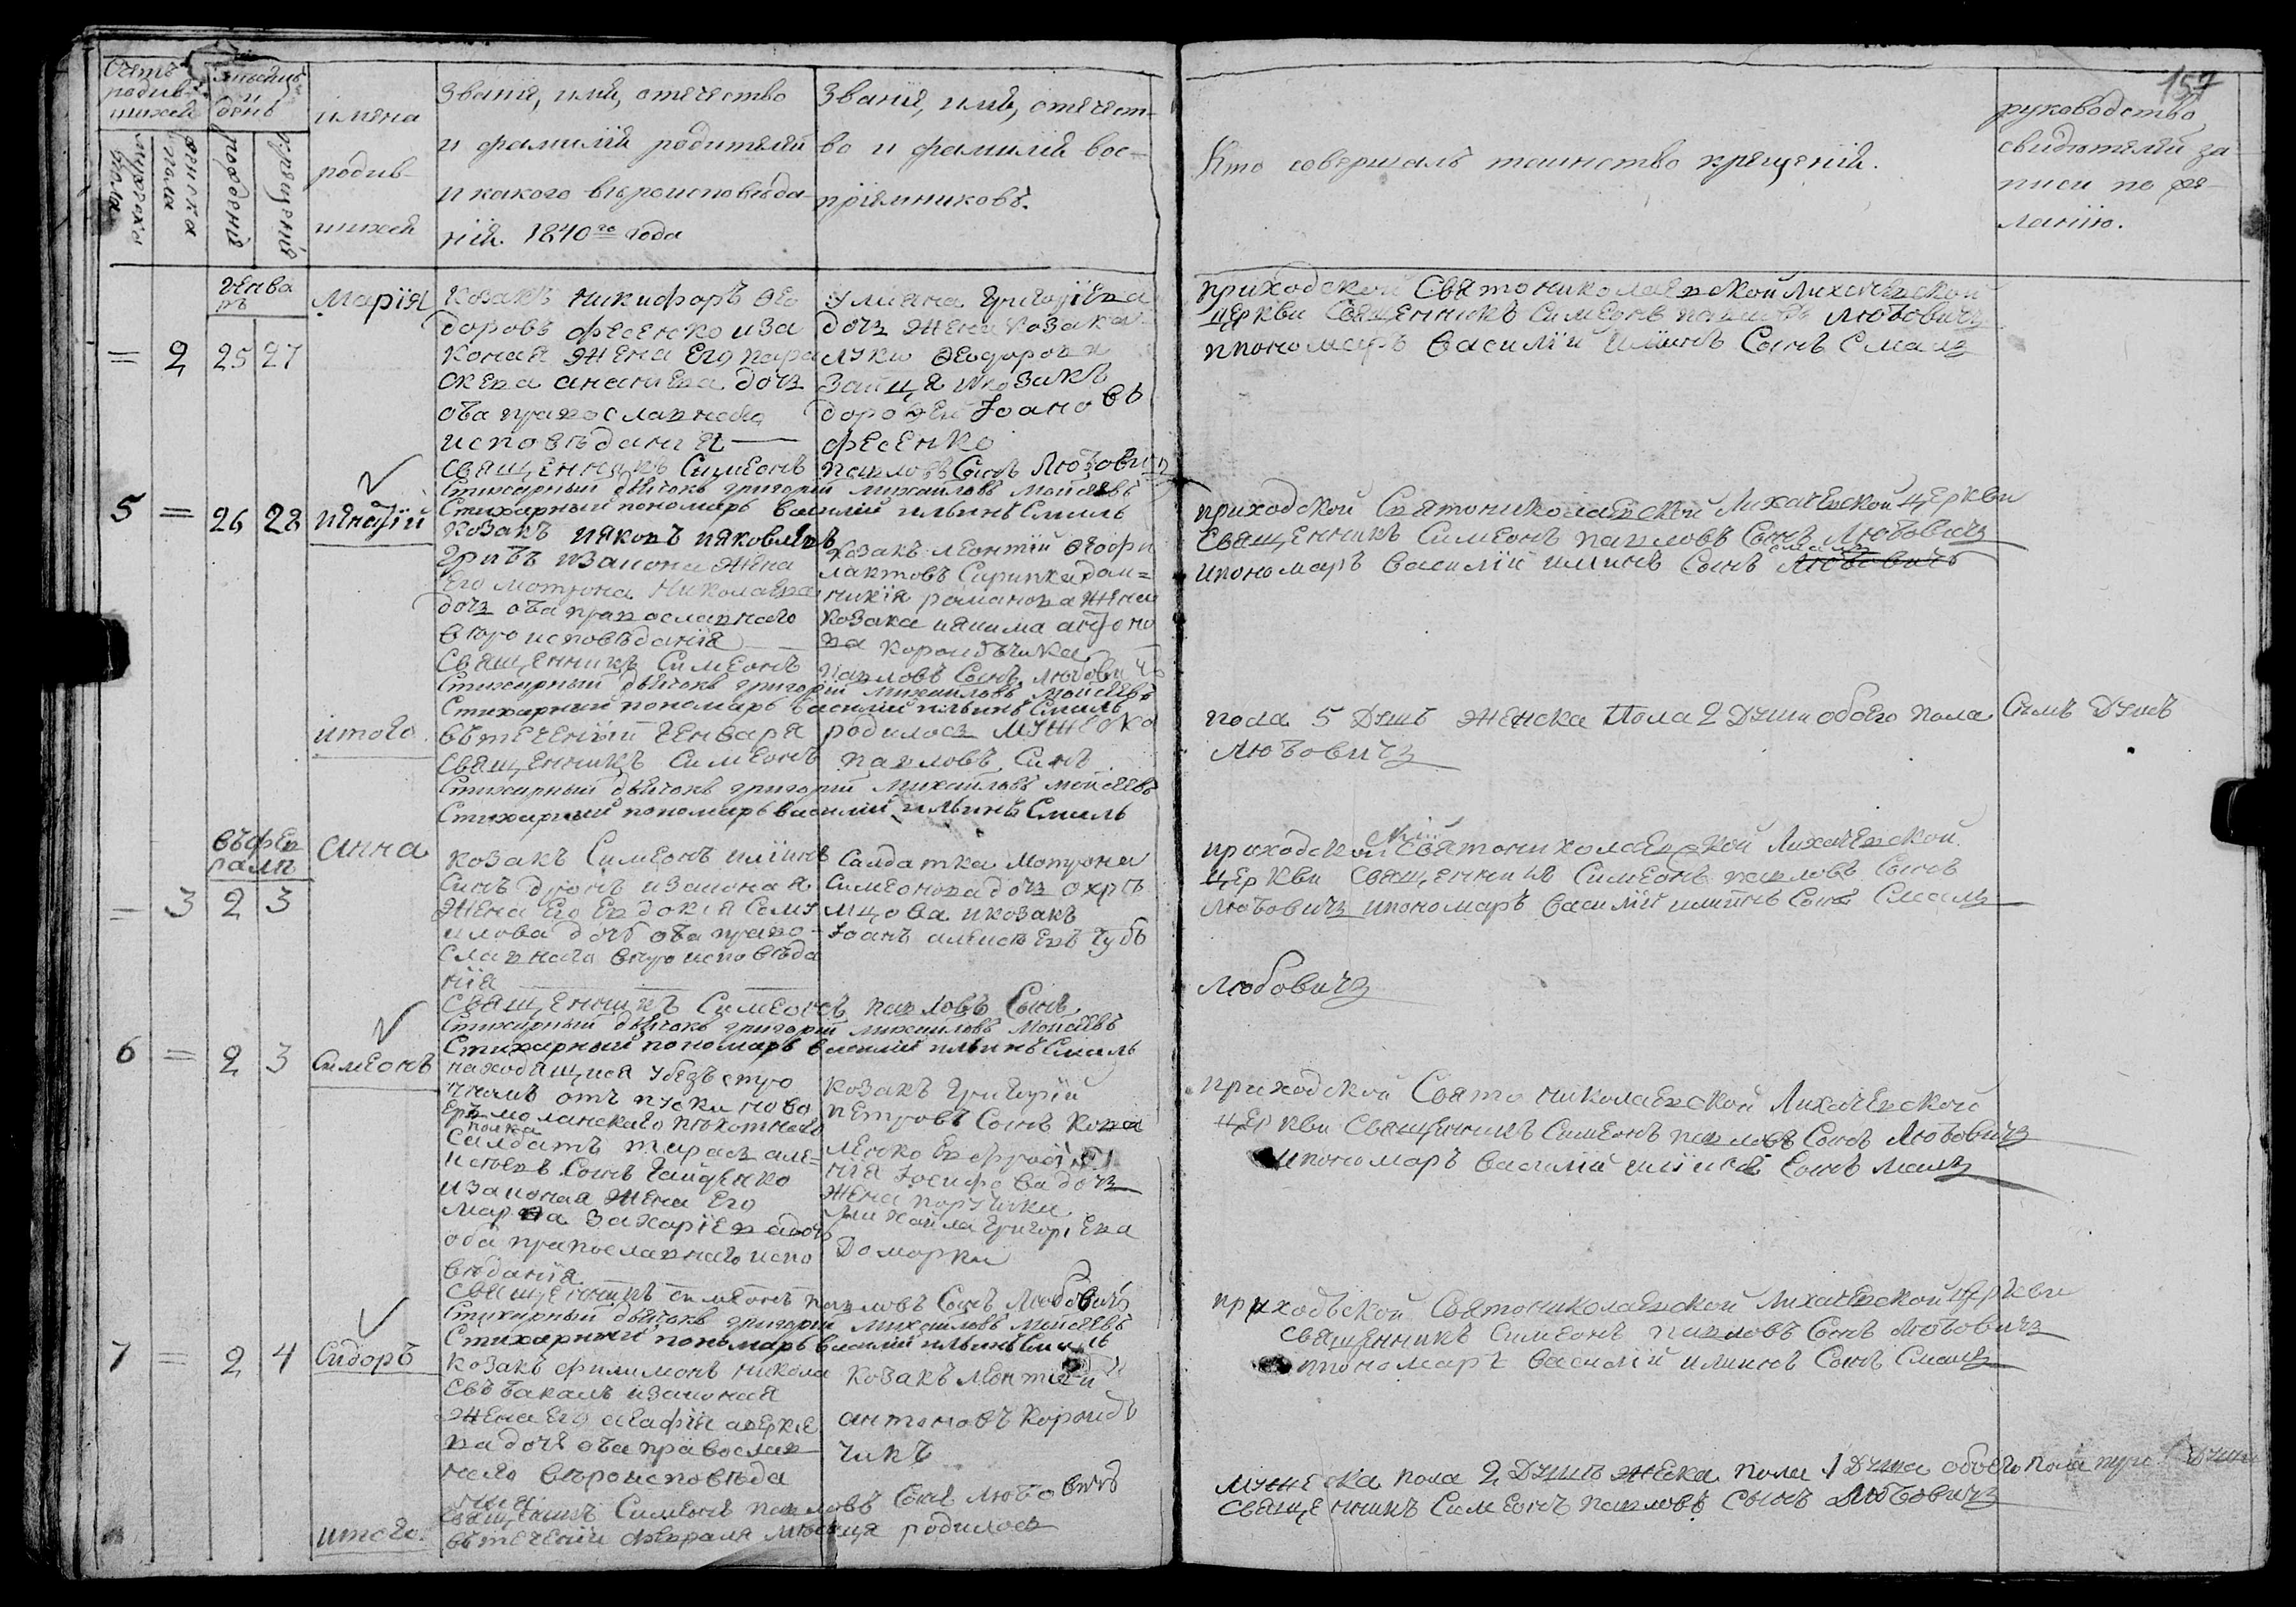 157
Счетъ родив-шихся
мѣсяцъ и день
имена родив-шихся
мужеска пола
женска пола
рожденія
крещенія
Званіе, имя, отечество
и фамилія родителей
и какого вѣроисповѣда-
нія. 1840го Года
Званіе, имя, отечест-
во и фамилія вос-
пріемниковъ.
Кто совершалъ таинство крещенія.
руководство
свидѣтелей за
писи по же-
ланію.
генва
ръ
= 2 25 27
Марія
Козакъ никифоръ Ѳео
доровъ фесенко иза
коная жена Его пара
скева ананіева дочь
оба православнаго
исповѣданія
Улияна григоріева
дочь жена козака
луки Ѳеодорова
Зайця икозакъ
дороѳей Іоановъ
фесенко
приходской Святониколаевской лихачевской
церкви Священникъ Симеонъ павловъ Любовичъ
ипономаръ Василій илиинъ Сынъ Смаль
Священникъ Симеонъ павловъ Сынъ Любовичъ
Стихарный дьячокъ григорій михаиловъ Мойсеевъ
Стихарный пономарь василий ильинъ Смаль
5 = 26 28
игнатій
Козакъ иаковъ иаковлевъ
грибъ изакона жена
Его мотрона Николаева
дочь оба православнаго
вѣроисповѣданія
Козакъ леонтій Ѳеофи
лактовъ Скрипка дом=
никія романова жена
козака иакима антоно
ва коронбъчика
приходской Святониколаевской Лихачевской церкви
Священникъ Симеонъ павловъ Сынъ Любовичъ
ипономаръ василій илиинъ Сынъ смаль Любовичъ
Священникъ Симеонъ павловъ Сынъ любовичъ
Стихарный дьячокъ григорій михаиловъ Мойсеевъ
Стихарный пономарь василий ильинъ Смаль
итого
въ теченіи генваря родилось мужеска
пола 5 душъ женска Пола 2 души обоего пола Семъ душъ
Священникъ Симеонъ павловъ Синъ
Любовичъ
Стихарный дьячокъ григорій михаиловъ мойсеевъ
Стихарный пономарь василий ильинъ Смаль
въ фев
ралѣ
= 3 2 3
Анна
козакъ Симеонъ илиинъ
Синъ изаконая
жена Его Евдокія Саму
илова дочъ оба право
славнаго вѣроисповѣда
нія
Салдатка Мотрона
Симеонова дочь охрѣ
мцова икозакъ
Іоанъ алексѣевъ чубъ
приходской Святониколаевской Лихачевской
церкви Священникъ Симеонъ павловъ Сынъ
Любовичъ ипономаръ василій илиинъ Сынъ Смаль
Священникъ Симеонъ павловъ Сынъ
Любовичъ
Стихарный дьячокъ григорій михаиловъ Мойсеевъ
Стихарный пономарь василий ильинъ Смаль
6 = 2 3
Симеонъ
находящийся убезъ сро
чномъ отъ пуску ново
пѣхотнаго
полка
Салдатъ тарасъ але=
ксѣевъ Сынъ Гайденко
изаконая жена Его
Марѳа Захаріева дочь
оба православнаго испо
вѣданія
козакъ григорій
петровъ Сынъ Кова
ленко Ефроси
нія Іосифова дочь
жена поручика
михайла григоріева
Доморки
приходской Свято николаевской Лихачевской
церкви Священникъ Симеонъ павловъ Сынъ Любовичъ
ипономаръ василій илиинъ Сынъ малъ
Священникъ симеонъ павловъ Сынъ Любовичъ
Стихарный дьячокъ григорій михаиловъ Мойсеевъ
Стихарный пономарь василий ильинъ Смаль
7 = 2 4
Сидоръ
козакъ филимонъ никола
евъ бакалъ изаконая
жена Его агафія аверкіе
ва дочъ оба православ
наго вѣроисповѣда
нія
козакъ Леонтий
антоновъ коронбъ
чикъ
приходьской Святониколаевской Лихачевской церкви
Священникъ Симеонъ павловъ Сынъ Любовичъ
ипономаръ василій илиинъ Сынъ Смаль
Священникъ Симеонъ павловъ Сынъ Любовичъ
итого
въ теченіи февраля мѣсяця родилось
мужеска пола 2 душъ жеска пола 1 душа обоего пола три души
Священникъ Симеонъ павловъ Сынъ Любовичъ